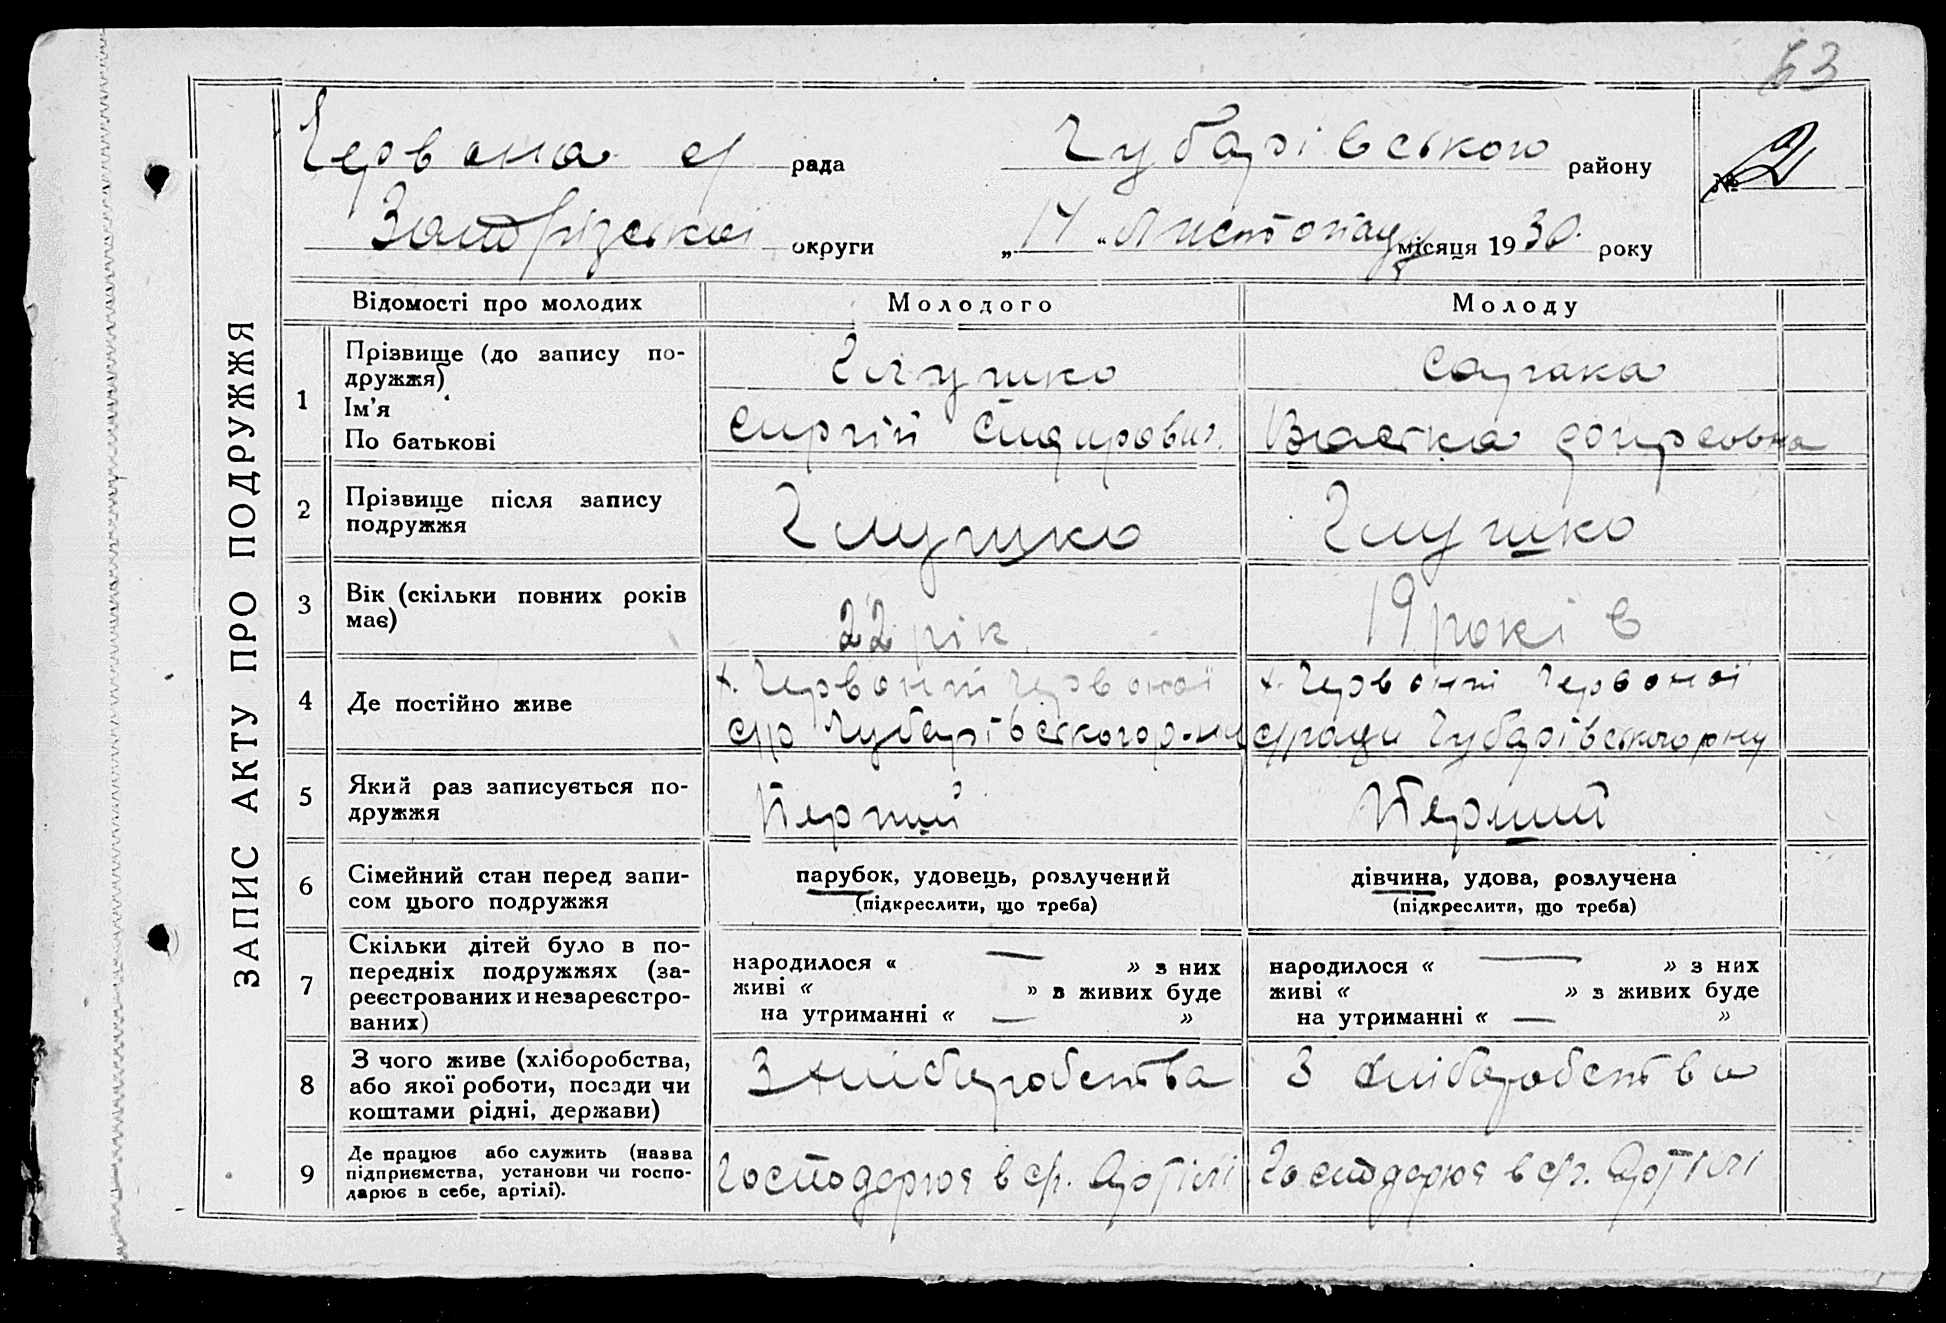 63
Червона с/ рада Чубарівського району № 2
Запорізької округи „ 14 “ Листопаду місяця 19 30 року
ЗАПИС АКТУ ПРО ПОДРУЖЖЯ
Відомості про молодих Молодого Молоду
1 Прізвище (до запису по-
дружжя)
Ім'я
По батькові
Глушко
Сиргій Сидирович
Саржака
Васека
2 Прізвище після запису
подружжя
Глушко
Глушко
3 Вік (скільки повних років
має)
22 рік
19 років
4 Де постійно живе
х. Червоний Червоної
с/р Чубарівського р-ну
х. Червоний Червоної
с/ради Чубарівського р-ну
5 Який раз записується по-
дружжя
Перший
Перший
6 Сімейний стан перед запи-
сом цього подружжя
парубок, удовець, розлучений
(підкреслити, що треба)
дівчина, удова, розлучена
(підкреслити, що треба)
7 Скільки дітей було в по-
передніх подружжях (за-
реєстрованих и незареєстро-
ваних)
народилося « — » з них
живі « » в живих буде
на утриманні « — »
народилося « — » з них
живі « » з живих буде
на утриманні « — »
8 З чого живе (хліборобства,
або якої роботи, посади чи
коштами рідні, держави)
З хліборобства
З хліборобства
9 Де працює або служить (назва
підприємства, установи чи госпо-
дарює в себе, артілі).
Господарює в с/г. Артілі
Господарює в с/г. Артілі